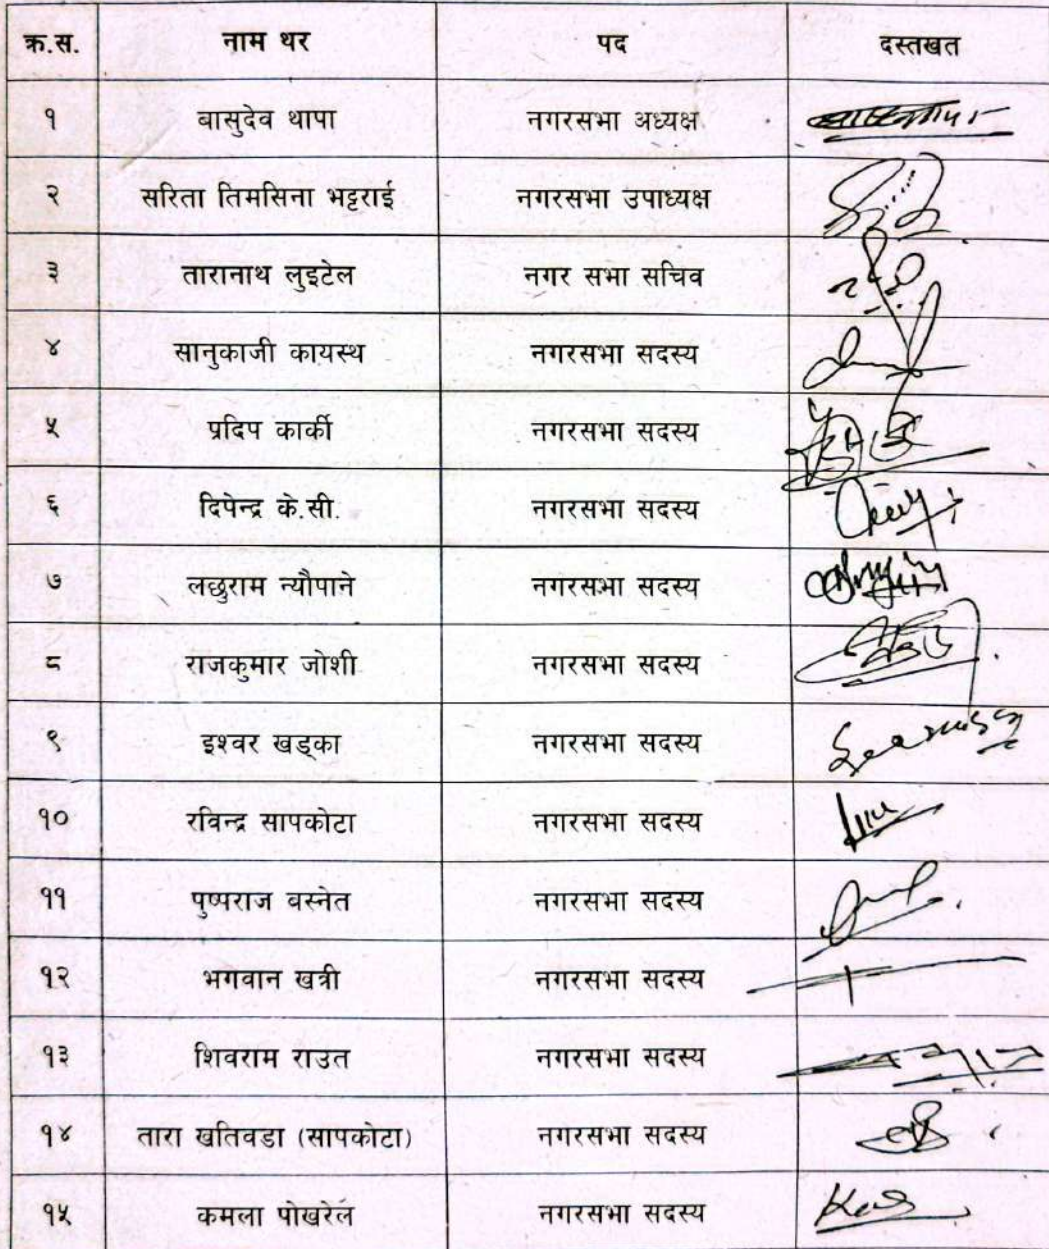 क्र.स. नाम थर पद दस्तखत
१ बासुदेव थापा नगरसभा अध्यक्ष
२ सरिता तिमसिना भट्टराई नगरसभा उपाध्यक्ष
३ तारानाथ लुइटेल नगर सभा सचिव
४ सानुकाजी कायस्थ नगरसभा सदस्य
५ प्रदिप कार्की नगरसभा सदस्य
६ दिपेन्द्र के.सी. नगरसभा सदस्य
७ लछुराम न्यौपाने नगरसभा सदस्य
८ राजकुमार जोशी नगरसभा सदस्य
९ इश्वर खड्का नगरसभा सदस्य
१० रविन्द्र सापकोटा नगरसभा सदस्य
११ पुष्पराज वस्नेत नगरसभा सदस्य
१२ भगवान खत्री नगरसभा सदस्य
१३ शिवराम राउत नगरसभा सदस्य
१४ तारा खतिवडा (सापकोटा) नगरसभा सदस्य
१५ कमला पोखरेल नगरसभा सदस्य